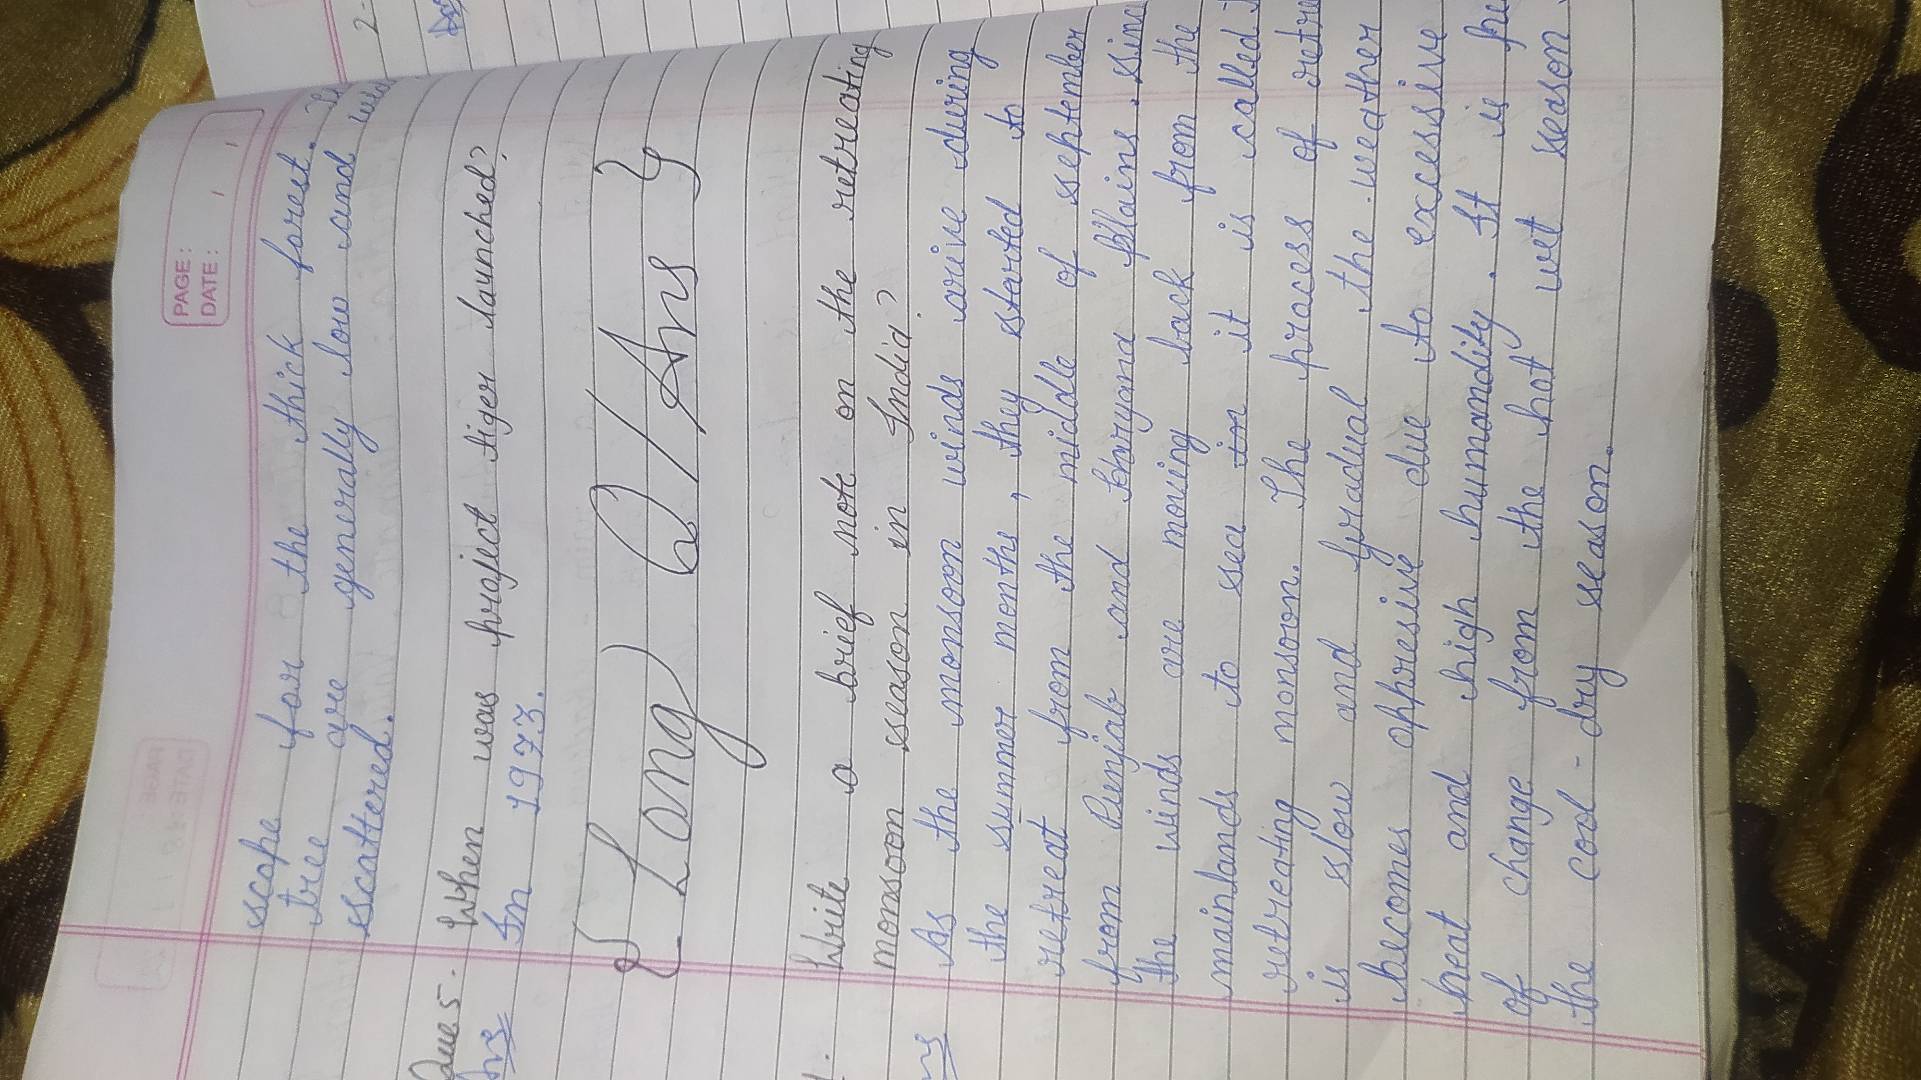 PAGE:
DATE:
escape for the thick forest.
tree are generally low and
scattered.
Que 5. When was project tiger launched?
Ans In 1973.
Long Q/Ans
Write a brief note on the retreating
monsoon season in India?
As the monsoon winds arive during
the summer months, they started to
retreat from the middle of september
from Punjab and Haryana plains.
the winds are moving back from the
mainlands to sea it is called
retreating monsoon. The process of
is slow and gradual the weather
becomes oppresive due to excessive
heat and high humandity. It is
of change from the hot wet season
the cool-dry season.